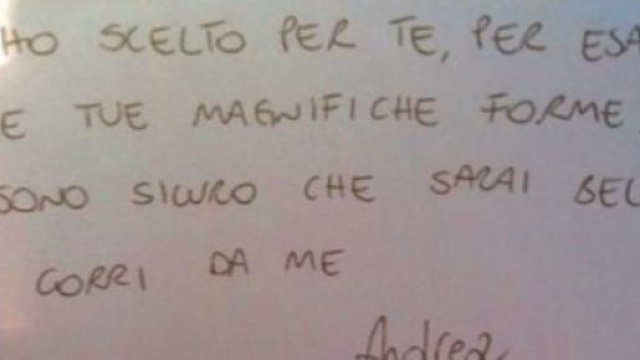 HO SCELTO PER TE, PER ESA
E TUE MAGNIFICHE FORME
SONO SICURO CHE SARAI BEL
CORRI DA ME
Andrea